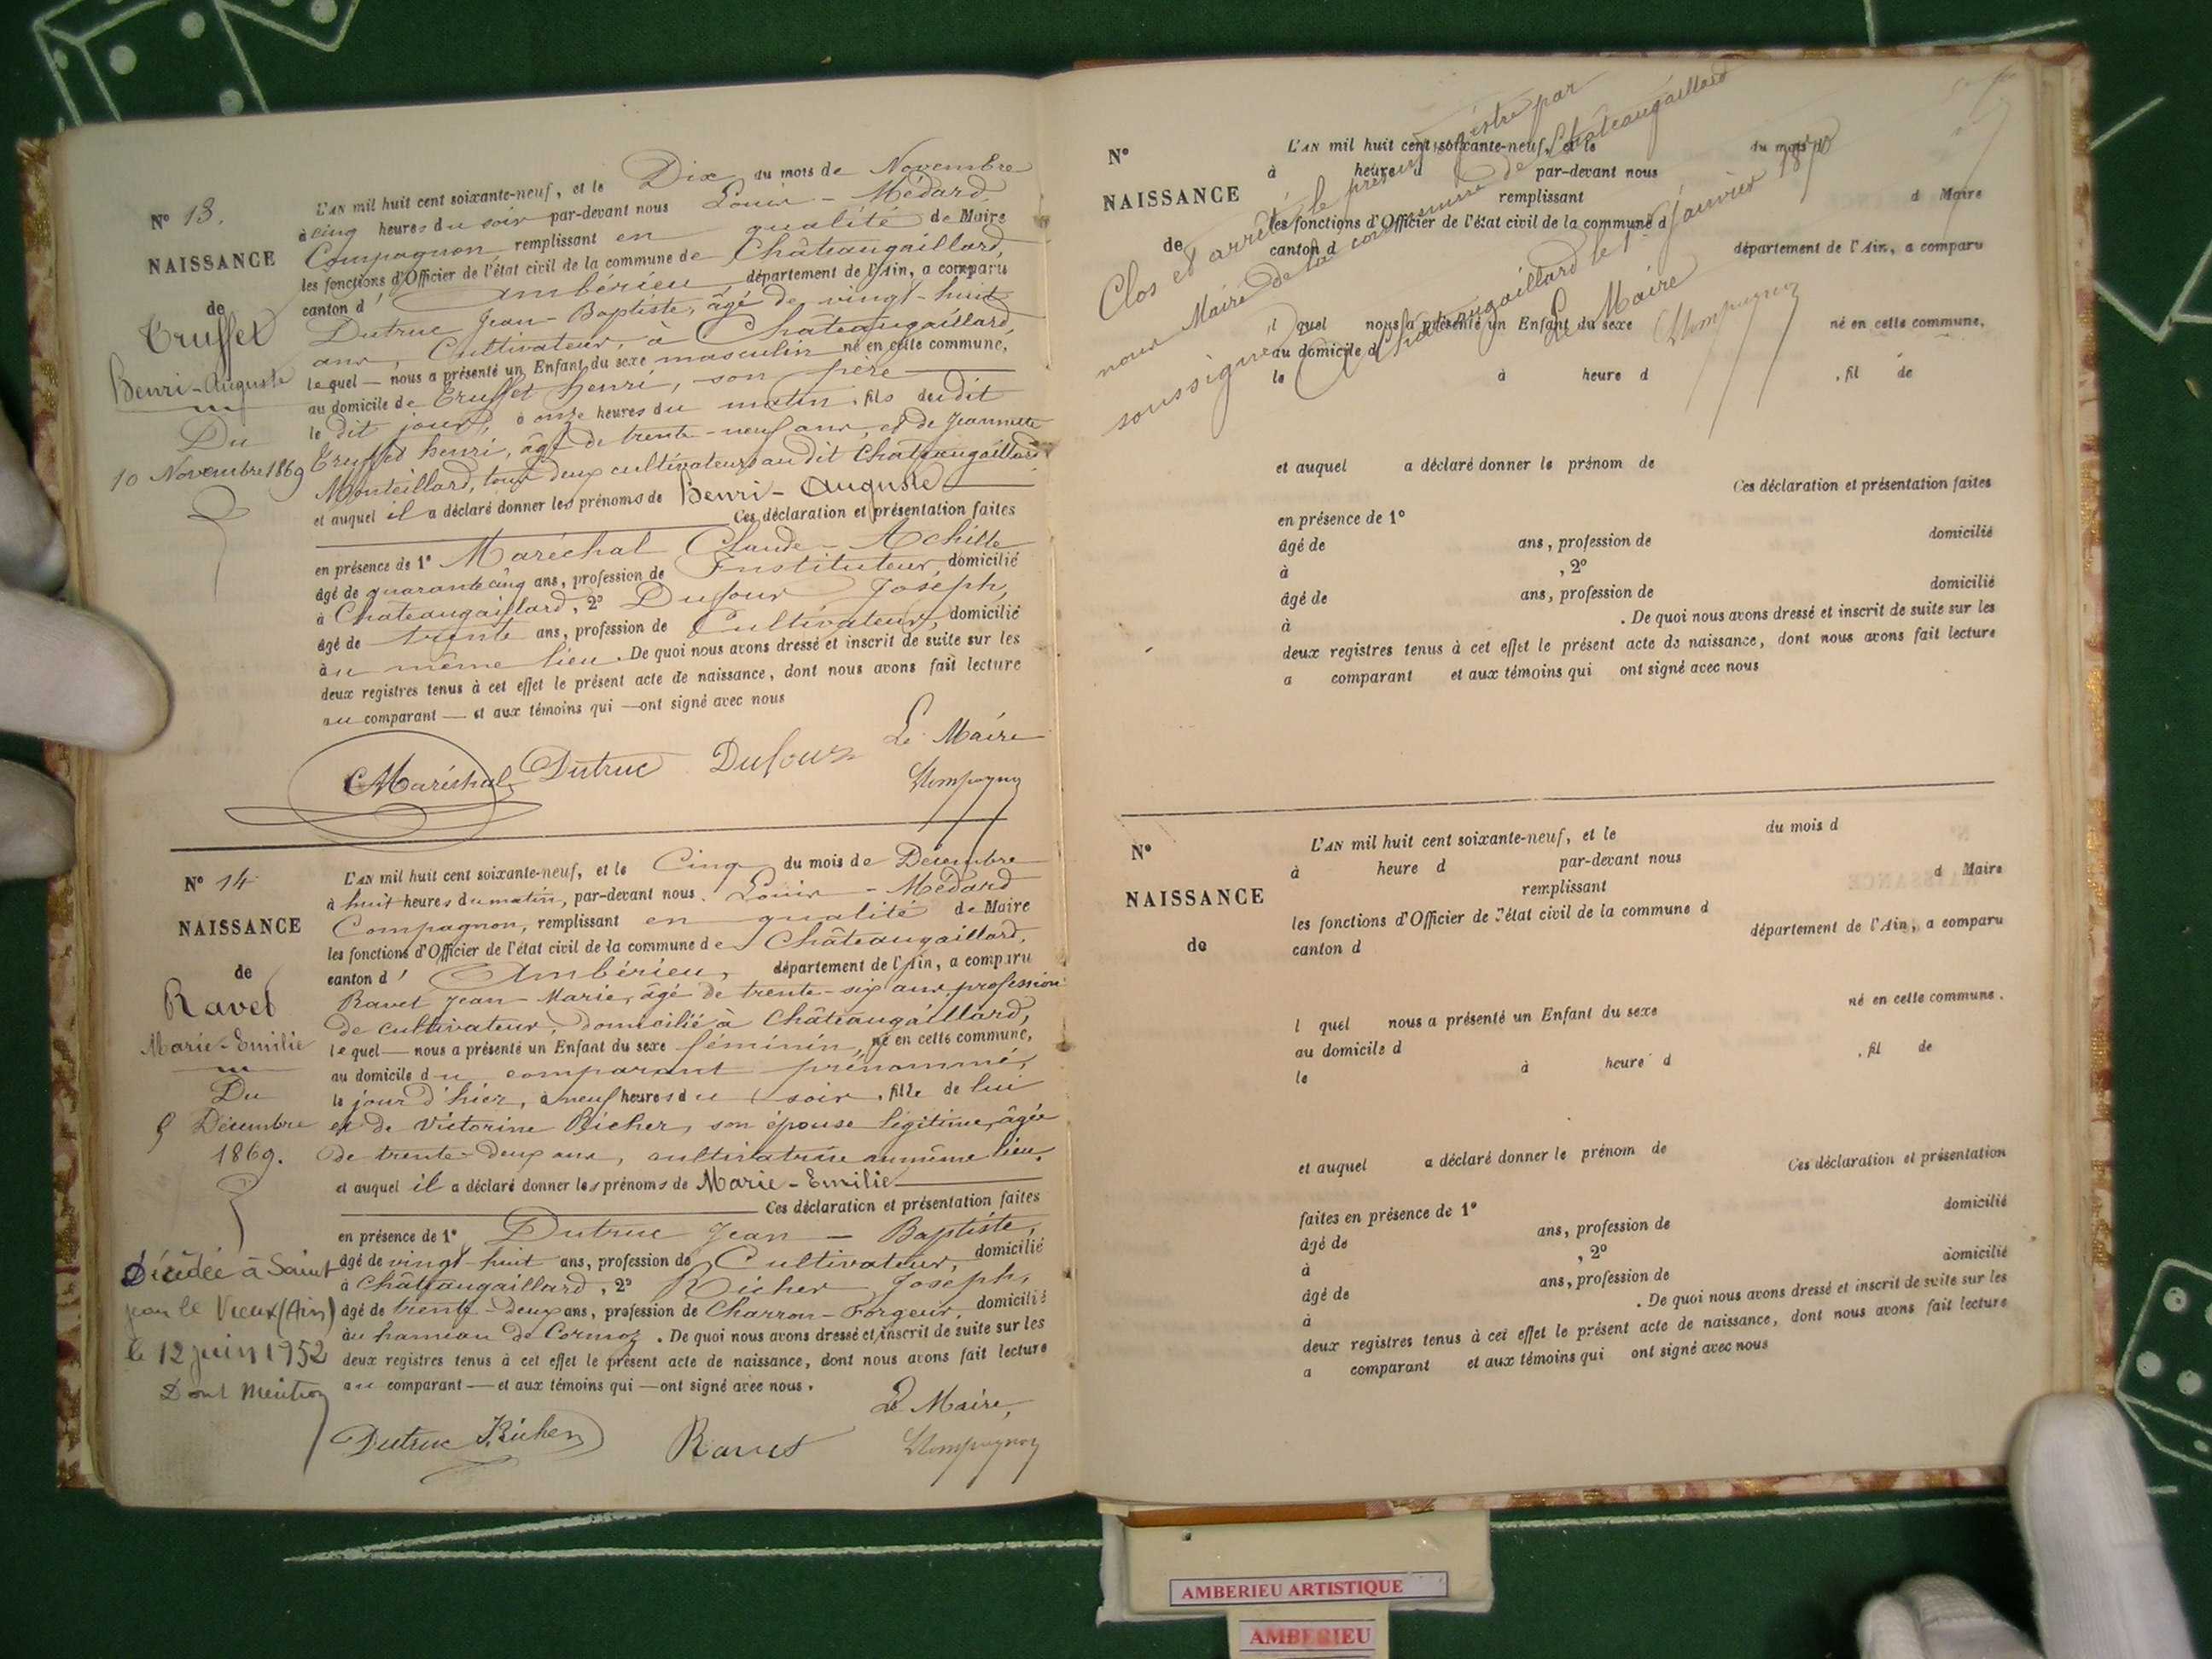 N° 13.
NAISSANCE
de
Truffet
Henri-Auguste
Du
10 Novembre 1869
L'AN mil huit cent soixante-neuf, et le Dix du mois de Novembre
à cinq heures du soir par-devant nous Louis-Médard
Compagnon, remplissant en qualité de Maire
les fonctions d'Officier de l'état civil de la commune de Châteaugaillard,
canton d'Ambérieu, département de l'Ain, a comparu
Dutruc Jean-Baptiste, âgé de vingt-huit
ans, Cultivateur, à Châteaugaillard,
lequel — nous a présenté un Enfant du sexe masculin né en cette commune,
au domicile de Truffet henri, son père
le dit jour, à onze heures du matin, fils dudit
Truffet henri, âgé de trente-neuf ans, et de Jeannette
Monteillard, tous deux cultivateurs audit Châteaugaillard
et auquel il a déclaré donner les prénoms de Henri-Auguste
Ces déclaration et présentation faites
en présence de 1° Maréchal Claude-Achille
âgé de quarante cinq ans, profession de Instituteur, domicilié
à Chateaugaillard, 2° Dufour Joseph,
âgé de trente ans, profession de Cultivateur, domicilié
au même lieu. De quoi nous avons dressé et inscrit de suite sur les
deux registres tenus à cet effet le présent acte de naissance, dont nous avons fait lecture
au comparant — et aux témoins qui — ont signé avec nous
Le Maire
CMaréchal Dutruc Dufour LCompagnon
N° 14
NAISSANCE
de
Ravet
Marie-Emilie
Du
5 Décembre
1869.
Décédée à Saint
jean le Vieux (Ain)
le 12 juin 1952
Dont Mention
L'AN mil huit cent soixante-neuf, et le Cinq du mois de Décembre
à huit heures du matin, par-devant nous Louis-Médard
Compagnon, remplissant en qualité de Maire
les fonctions d'Officier de l'état civil de la commune de Châteaugaillard,
canton d'Ambérieu, département de l'Ain, a comparu
Ravet Jean-Marie, âgé de trente-six ans, profession
de cultivateur, domicilié à Châteaugaillard,
lequel — nous a présenté un Enfant du sexe féminin, né en cette commune,
au domicile du comparant prénommé,
le jour d'hier, à neuf heures du soir, fille de lui
et de Victorine Richer, son épouse légitime, âgée
de trente-deux ans, cultivatrice au même lieu,
et auquel il a déclaré donner les prénoms de Marie-Emilie
Ces déclaration et présentation faites
en présence de 1° Dutruc Jean-Baptiste,
âgé de vingt-huit ans, profession de Cultivateur, domicilié
à Châteaugaillard, 2° Richer Joseph,
âgé de trente-deux ans, profession de Charron-Forgeur, domicilié
au hameau de Cormoz. De quoi nous avons dressé et inscrit de suite sur les
deux registres tenus à cet effet le présent acte de naissance, dont nous avons fait lecture
au comparant — et aux témoins qui — ont signé avec nous.
Le Maire,
Dutruc J. Richer Ravet LCompagnon
N°
NAISSANCE
de
L'AN mil huit cent soixante-neuf, et le du mois d
à heure d par-devant nous
remplissant d Maire
les fonctions d'Officier de l'état civil de la commune d
canton d département de l'Ain, a comparu
l quel nous a présenté un Enfant du sexe né en cette commune,
au domicile d
le à heure d , fil de
et auquel a déclaré donner le prénom de
Ces déclaration et présentation faites
en présence de 1°
âgé de ans, profession de domicilié
à , 2°
âgé de ans, profession de domicilié
à . De quoi nous avons dressé et inscrit de suite sur les
deux registres tenus à cet effet le présent acte de naissance, dont nous avons fait lecture
a comparant et aux témoins qui ont signé avec nous
Clos et arrêté le présent registre par
nous Maire de la commune de Châteaugaillard
soussigné, Châteaugaillard le 1er janvier 1870
Le Maire
LCompagnon
N°
NAISSANCE
de
L'AN mil huit cent soixante-neuf, et le du mois d
à heure d par-devant nous
remplissant d Maire
les fonctions d'Officier de l'état civil de la commune d
canton d département de l'Ain, a comparu
l quel nous a présenté un Enfant du sexe né en cette commune.
au domicile d
le à heure d , fil de
et auquel a déclaré donner le prénom de
Ces déclaration et présentation
faites en présence de 1°
âgé de ans, profession de domicilié
à , 2°
âgé de ans, profession de domicilié
à . De quoi nous avons dressé et inscrit de suite sur les
deux registres tenus à cet effet le présent acte de naissance, dont nous avons fait lecture
a comparant et aux témoins qui ont signé avec nous
AMBERIEU ARTISTIQUE
AMBERIEU